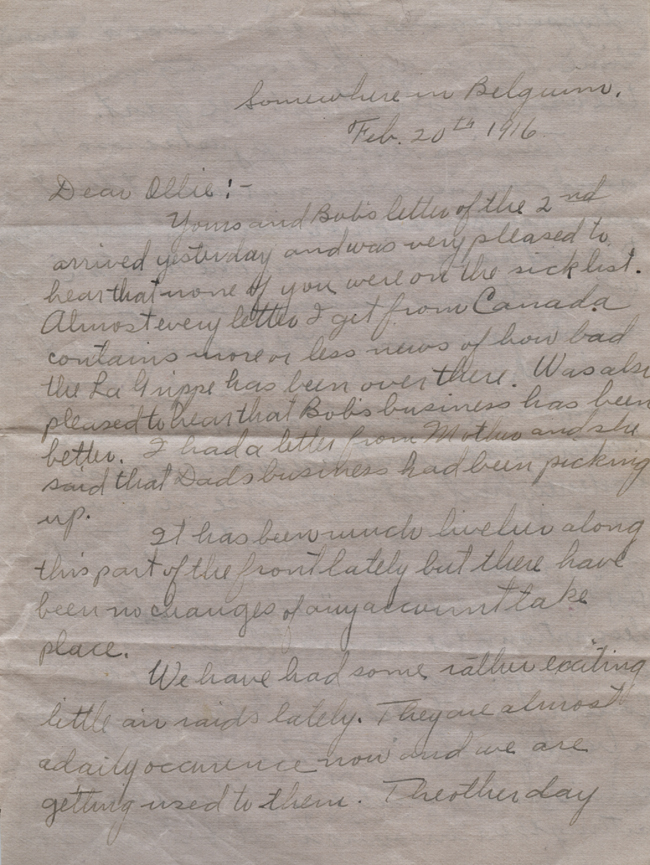 Somewhere in Belguim.
Feb. 20th 1916
Dear Ollie:-
Yours and Bob's letter of the 2nd
arrived yesterday and was very pleased to
hear that none of you were on the sick list.
Almost every letter I get from Canada
contains more or less news of how bad
the La Grippe has been over there. Was also
pleased to hear that Bob's business has been
better. I had a letter from Mother and she
said that Dads business had been picking
up.
It has been much livelier along
this part of the front lately but there have
been no changes of any account take
place.
We have had some rather exciting
little air raids lately. They are almost
a daily occurence now and we are
getting used to them. The other day